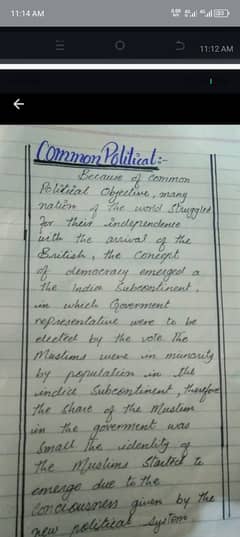 11:14 AM
11:12 AM
Common Political:-
Because of common
Political Objective, many
nation of the world Struggled
for their independence
with the arrival of the
British, the concept
of democracy emerged a
the India Subcontinent.
in which Goverment
representative were to be
elected by the vote. The
Muslims were in minority
by population in the
indica Subcontinent, therefore
the share of the Muslim
in the goverment was
Small the identity of
the Muslims Started to
emerge due to the
Conciousness given by the
new political System